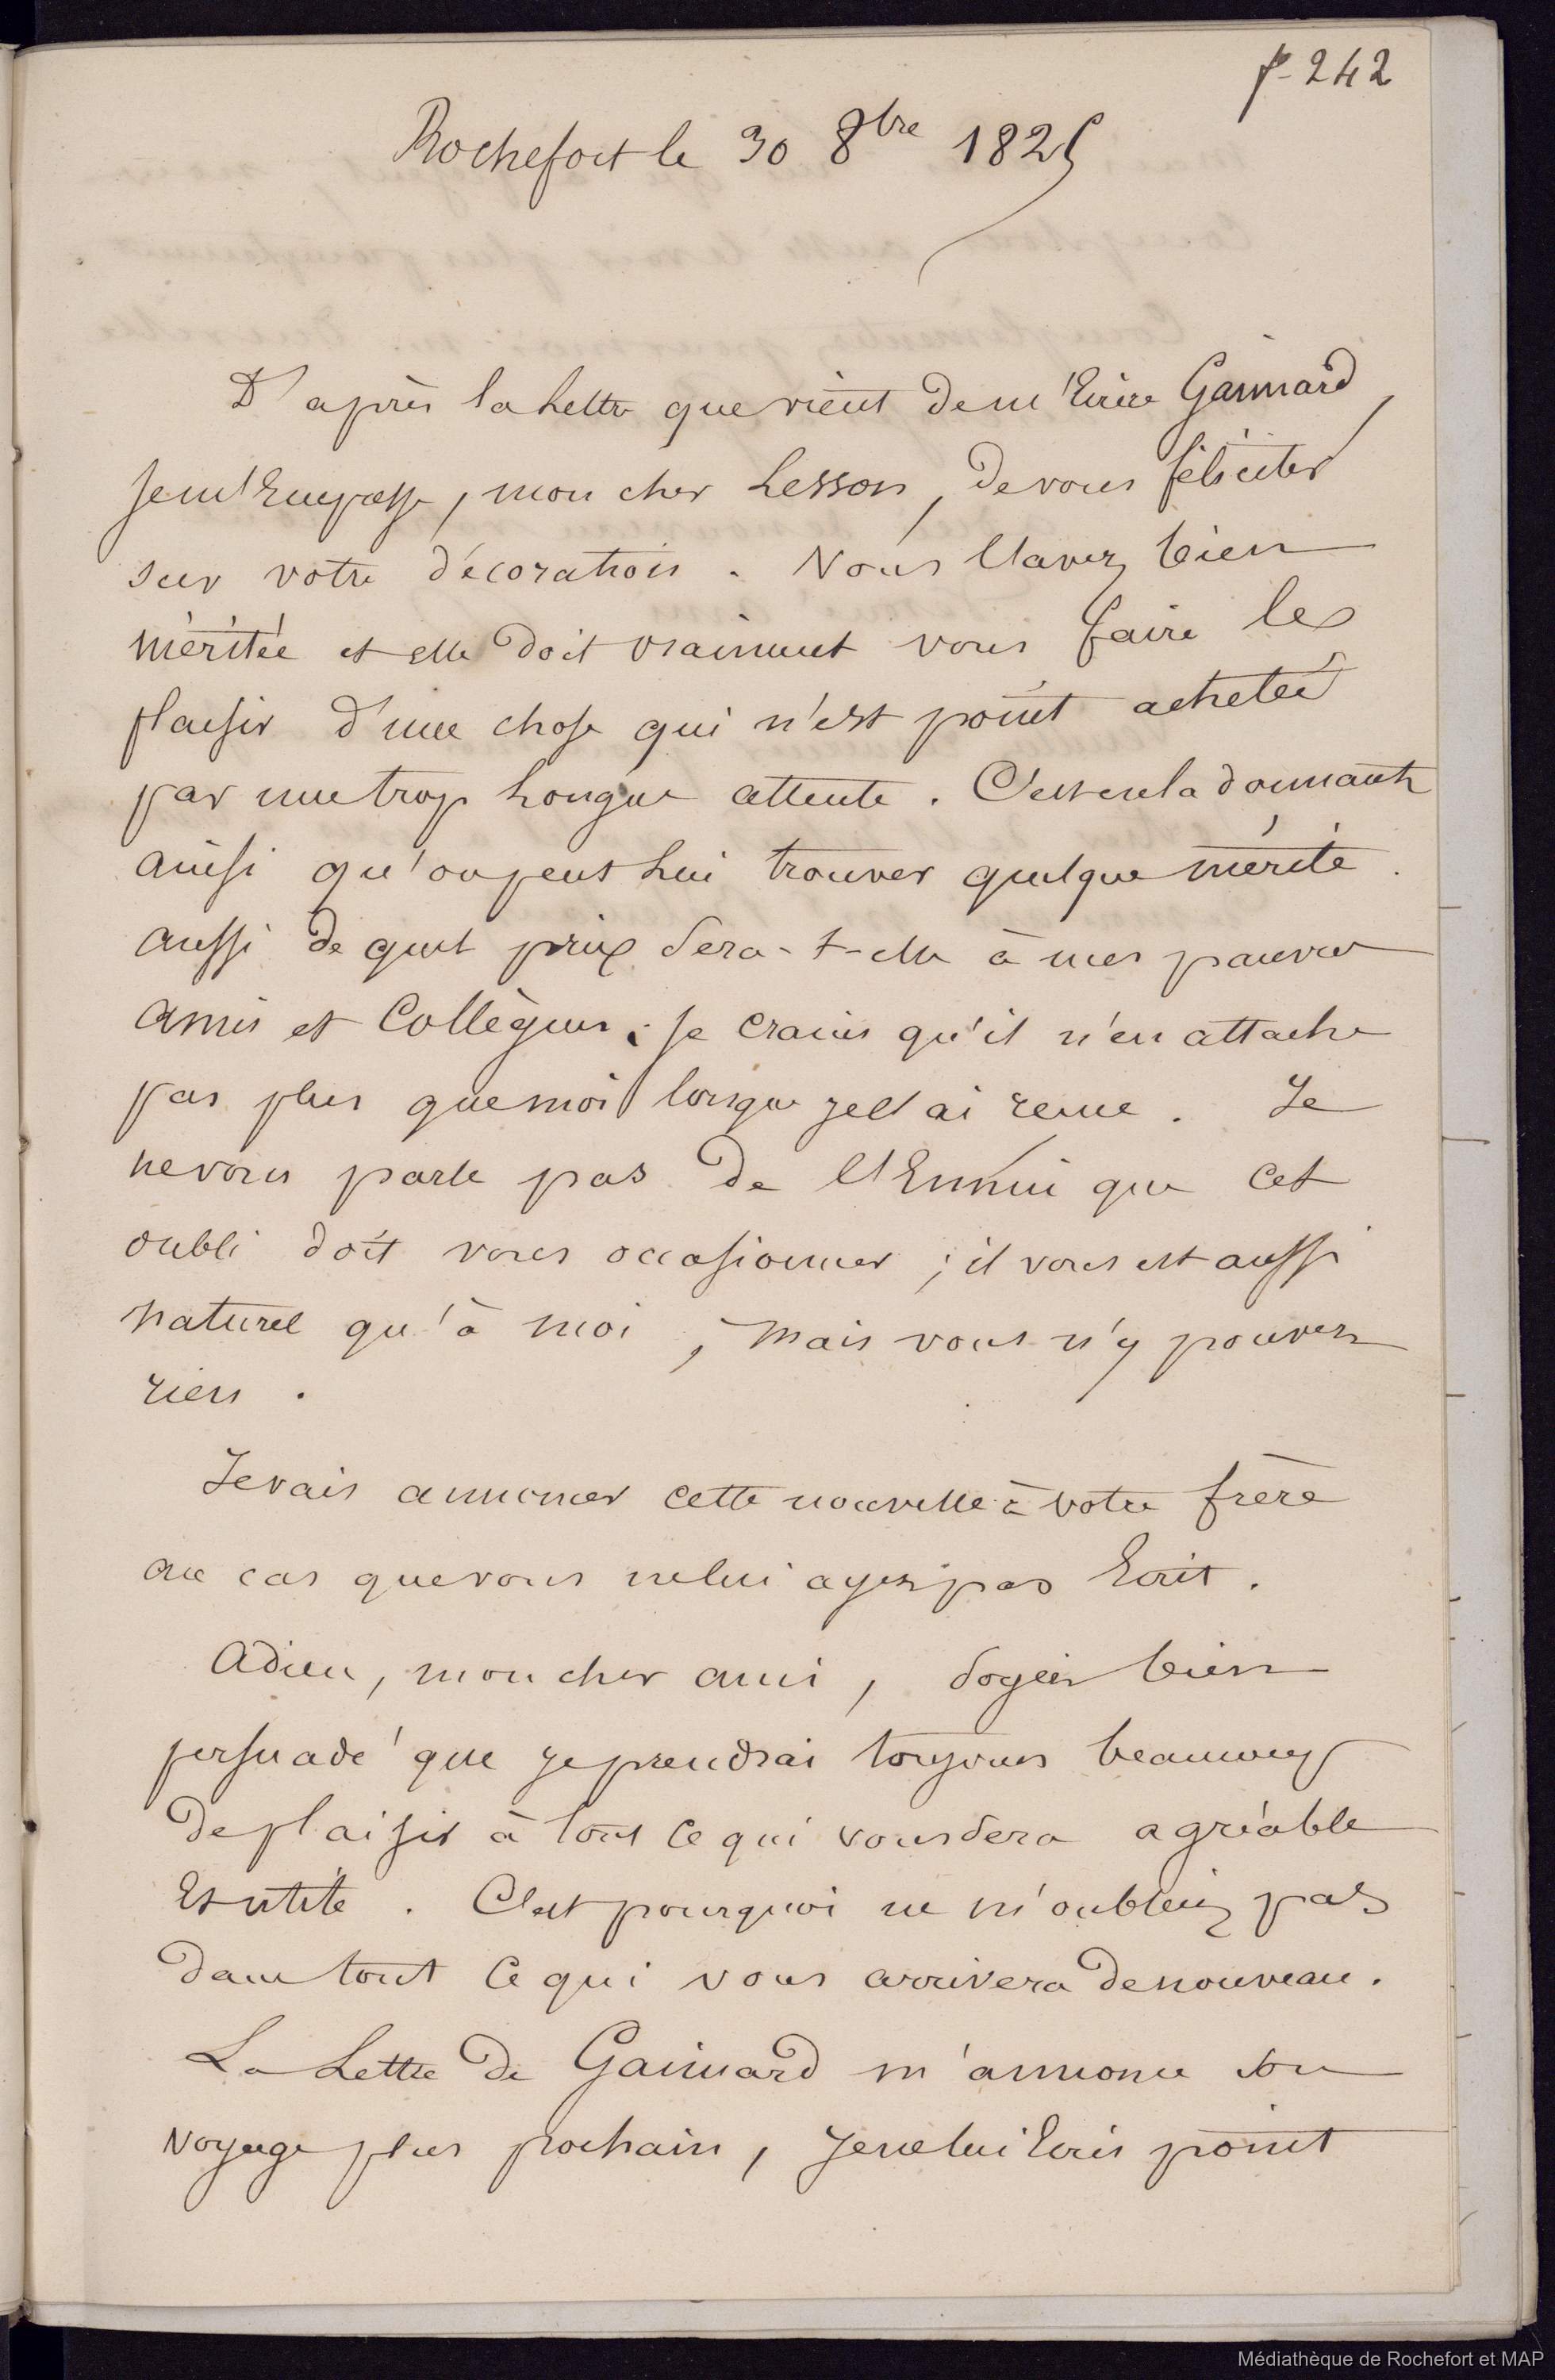 p. 242
Rochefort le 30 8bre 1825
D'après la Lettre que vient de m'Ecrire Gaimard,
Je m'Empresse, mon cher Lesson, de vous féliciter
sur votre décoration. Vous l'avez bien
méritée et elle doit vraiment vous faire les
plaisir d'une chose qui n'est point achetée
par une trop Longue attente. C'est en la donnant
ainsi qu'on peut Lui trouver quelque mérite.
aussi de quel prix sera-t-elle à mes pauvres
amis et Collègues ; Je crains qu'il n'en attache
pas plus que moi lorsque je l'ai reçue. Je
ne vous parle pas de l'Ennui que cet
oubli doit vous occasionner ; il vous est aussi
naturel qu'à moi, mais vous n'y pouvez
rien.
Je vais annoncer cette nouvelle à votre frère
au cas que vous ne lui ayez pas Ecrit.
Adieu, mon cher ami, soyez bien
persuadé que je prendrai toujours beaucoup
de plaisir à tout ce qui vous sera agréable
Et utile. C'est pourquoi ne m'oubliez pas
dans tout ce qui vous arrivera de nouveau.
La Lettre de Gaimard m'annonce son
voyage plus prochain, Je ne lui Ecris point
Médiathèque de Rochefort et MAP